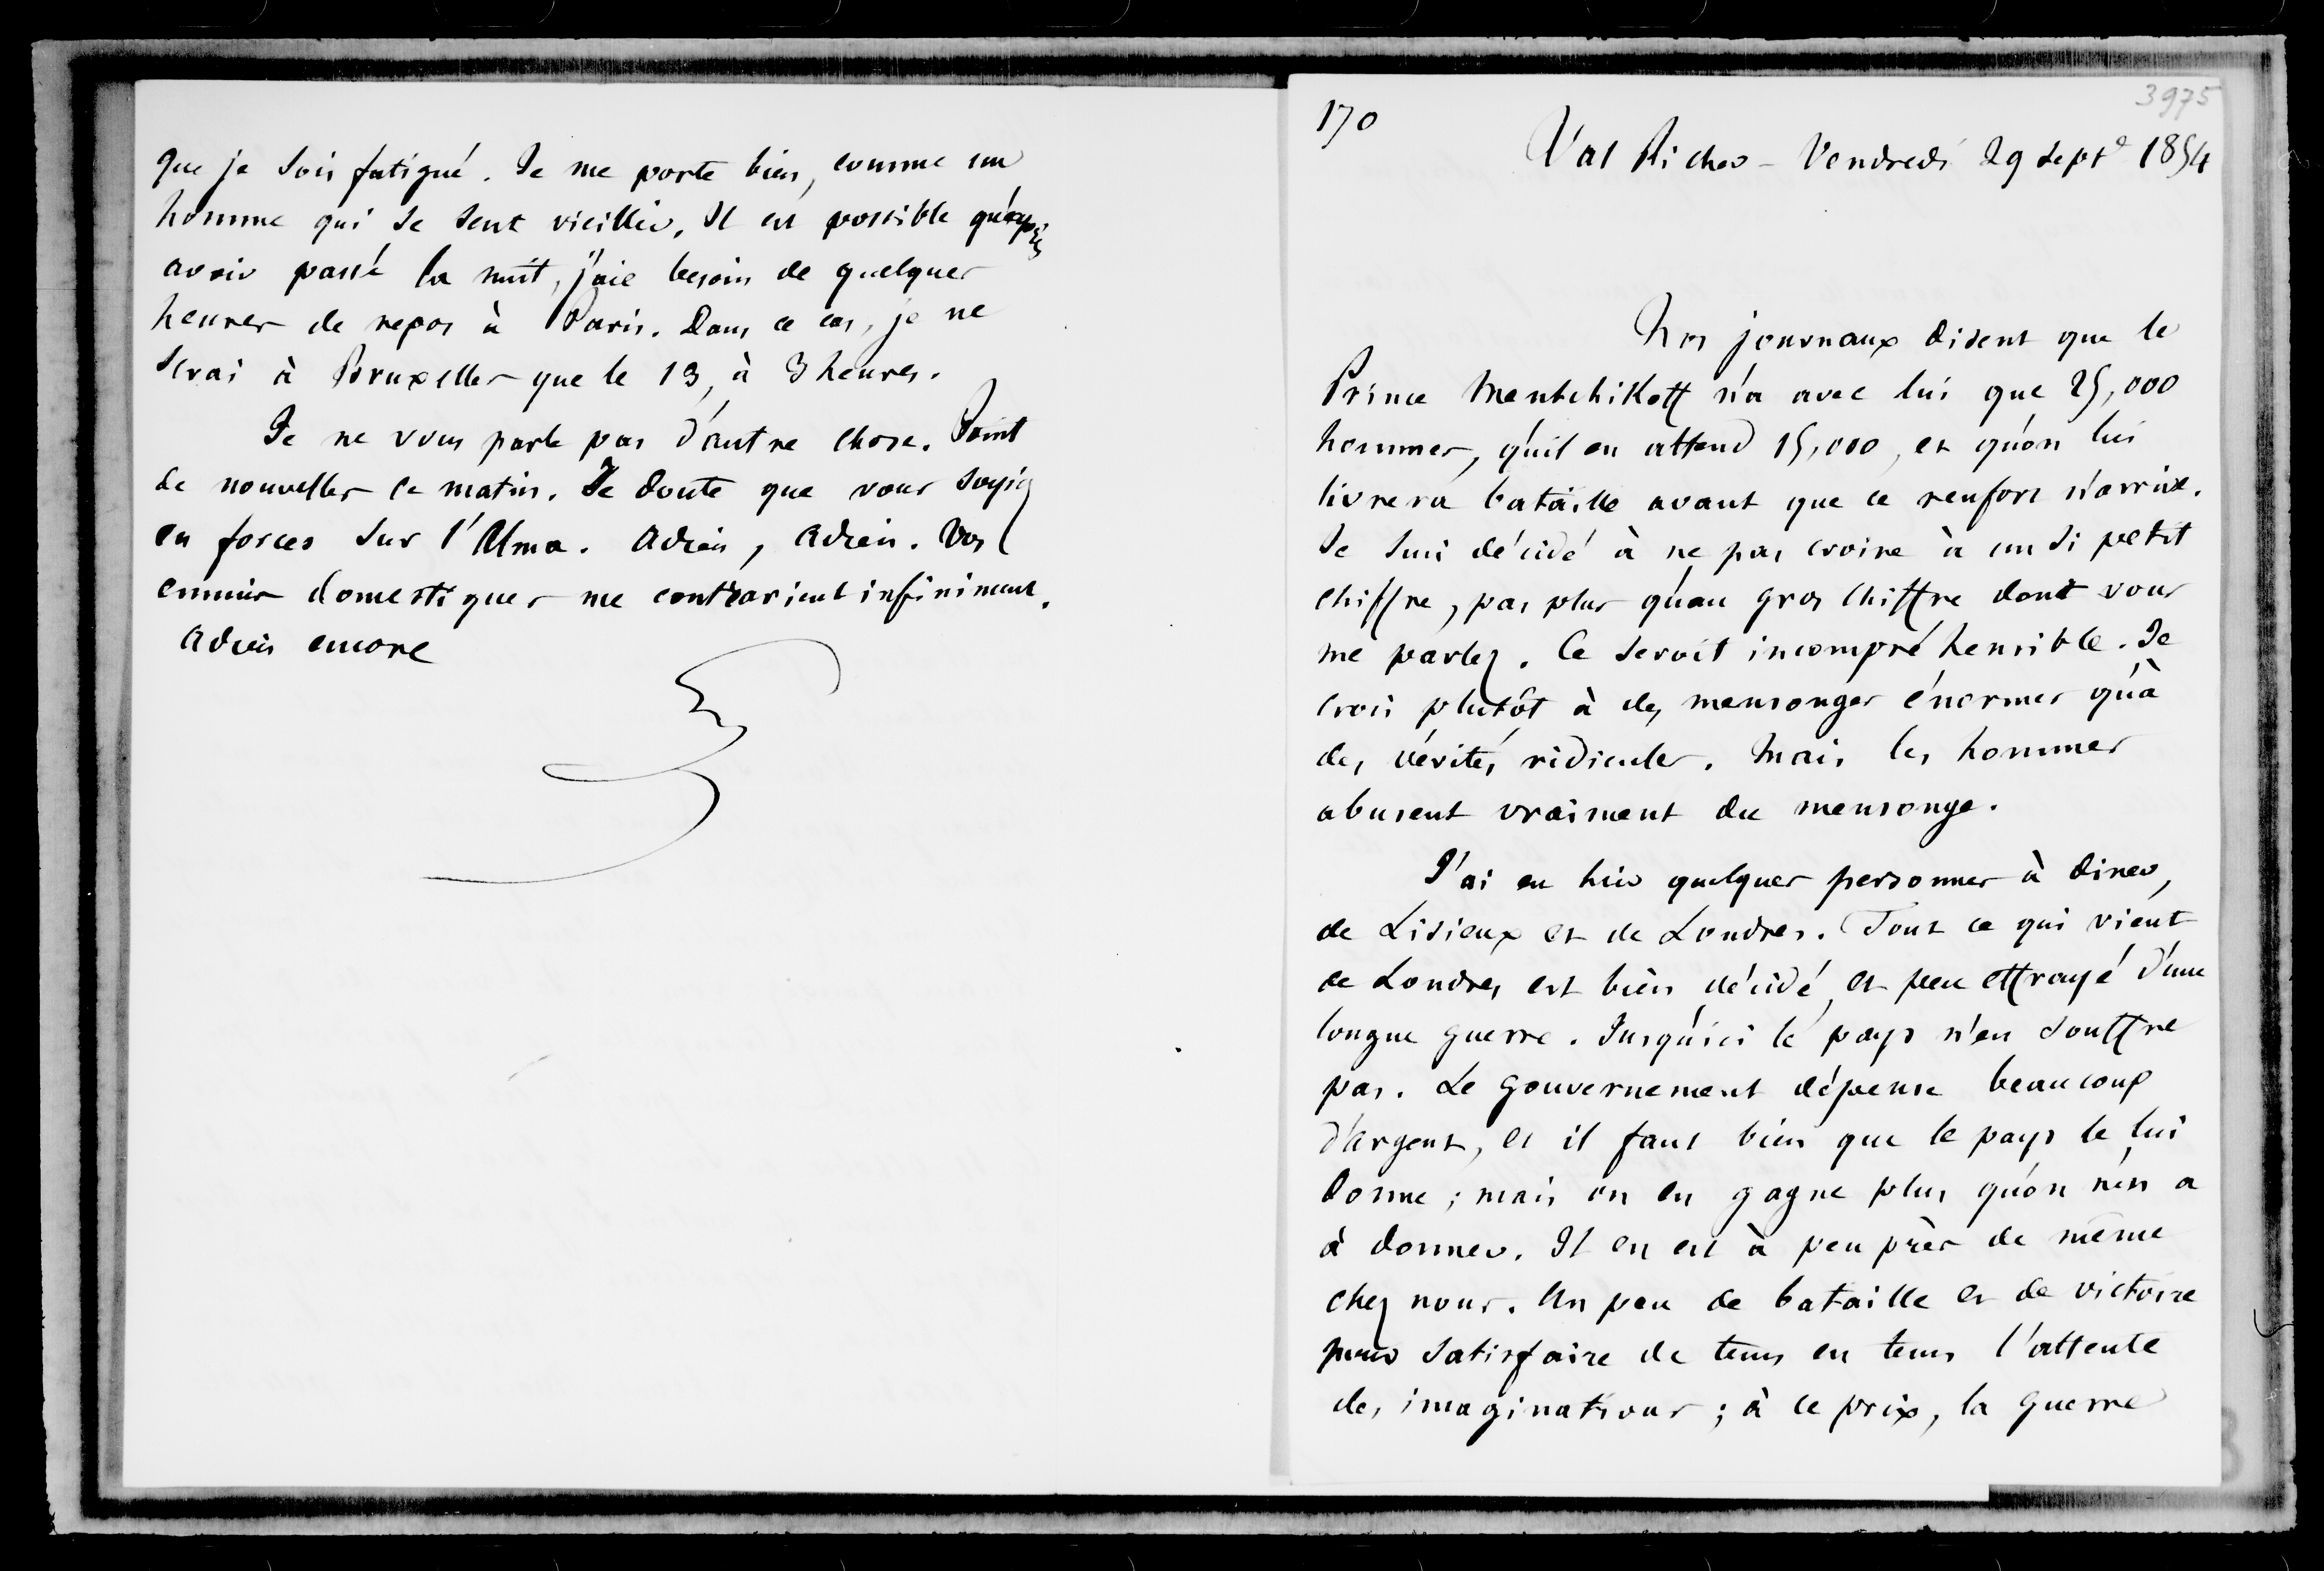 que je sois fatigué. Je me porte bien, comme un
homme qui se sent vieillir. Il est possible qu'après
avoir passé la nuit, j'aie besoin de quelques
heures de repos à Paris. Dans ce cas, je ne
serai à Bruxelles que le 13, à 3 heures.
Je ne vous parle pas d'autre chose. Point
de nouvelles ce matin. Je doute que vous soyiez
en forces sur l'Alma. Adieu, Adieu. Vos
ennuis domestiques me contrarient infiniment.
Adieu encore
170
3975
Val Richer - Vendredi 29 Septe 1854
Nos journaux disent que le
Prince Mentchikoff n'a avec lui que 25,000
hommes, qu'il en attend 15,000, et qu'on lui
livrera bataille avant que ce renfort n'arrive.
Je suis décidé à ne pas croire à un si petit
chiffre, pas plus qu'au gros chiffre dont vous
me parlez. Ce seroit incompréhensible. Je
crois plutôt à des mensonges énormes qu'à
des vérités ridicules. Mais les hommes
abusent vraiment du mensonge.
J'ai eu hier quelques personnes à diner,
de Lisieux et de Londres. Tout ce qui vient
de Londres est bien décidé et peu effrayé d'une
longue guerre. Jusqu'ici le pays n'en souffre
pas. Le gouvernement dépense beaucoup
d'argent, et il faut bien que le pays le lui
donne ; mais on en gagne plus qu'on n'en a
à donner. Il en est à peu près de même
chez nous. Un peu de bataille et de victoire
pour satisfaire de tems en tems l'attente
des imaginations ; à ce prix, la guerre